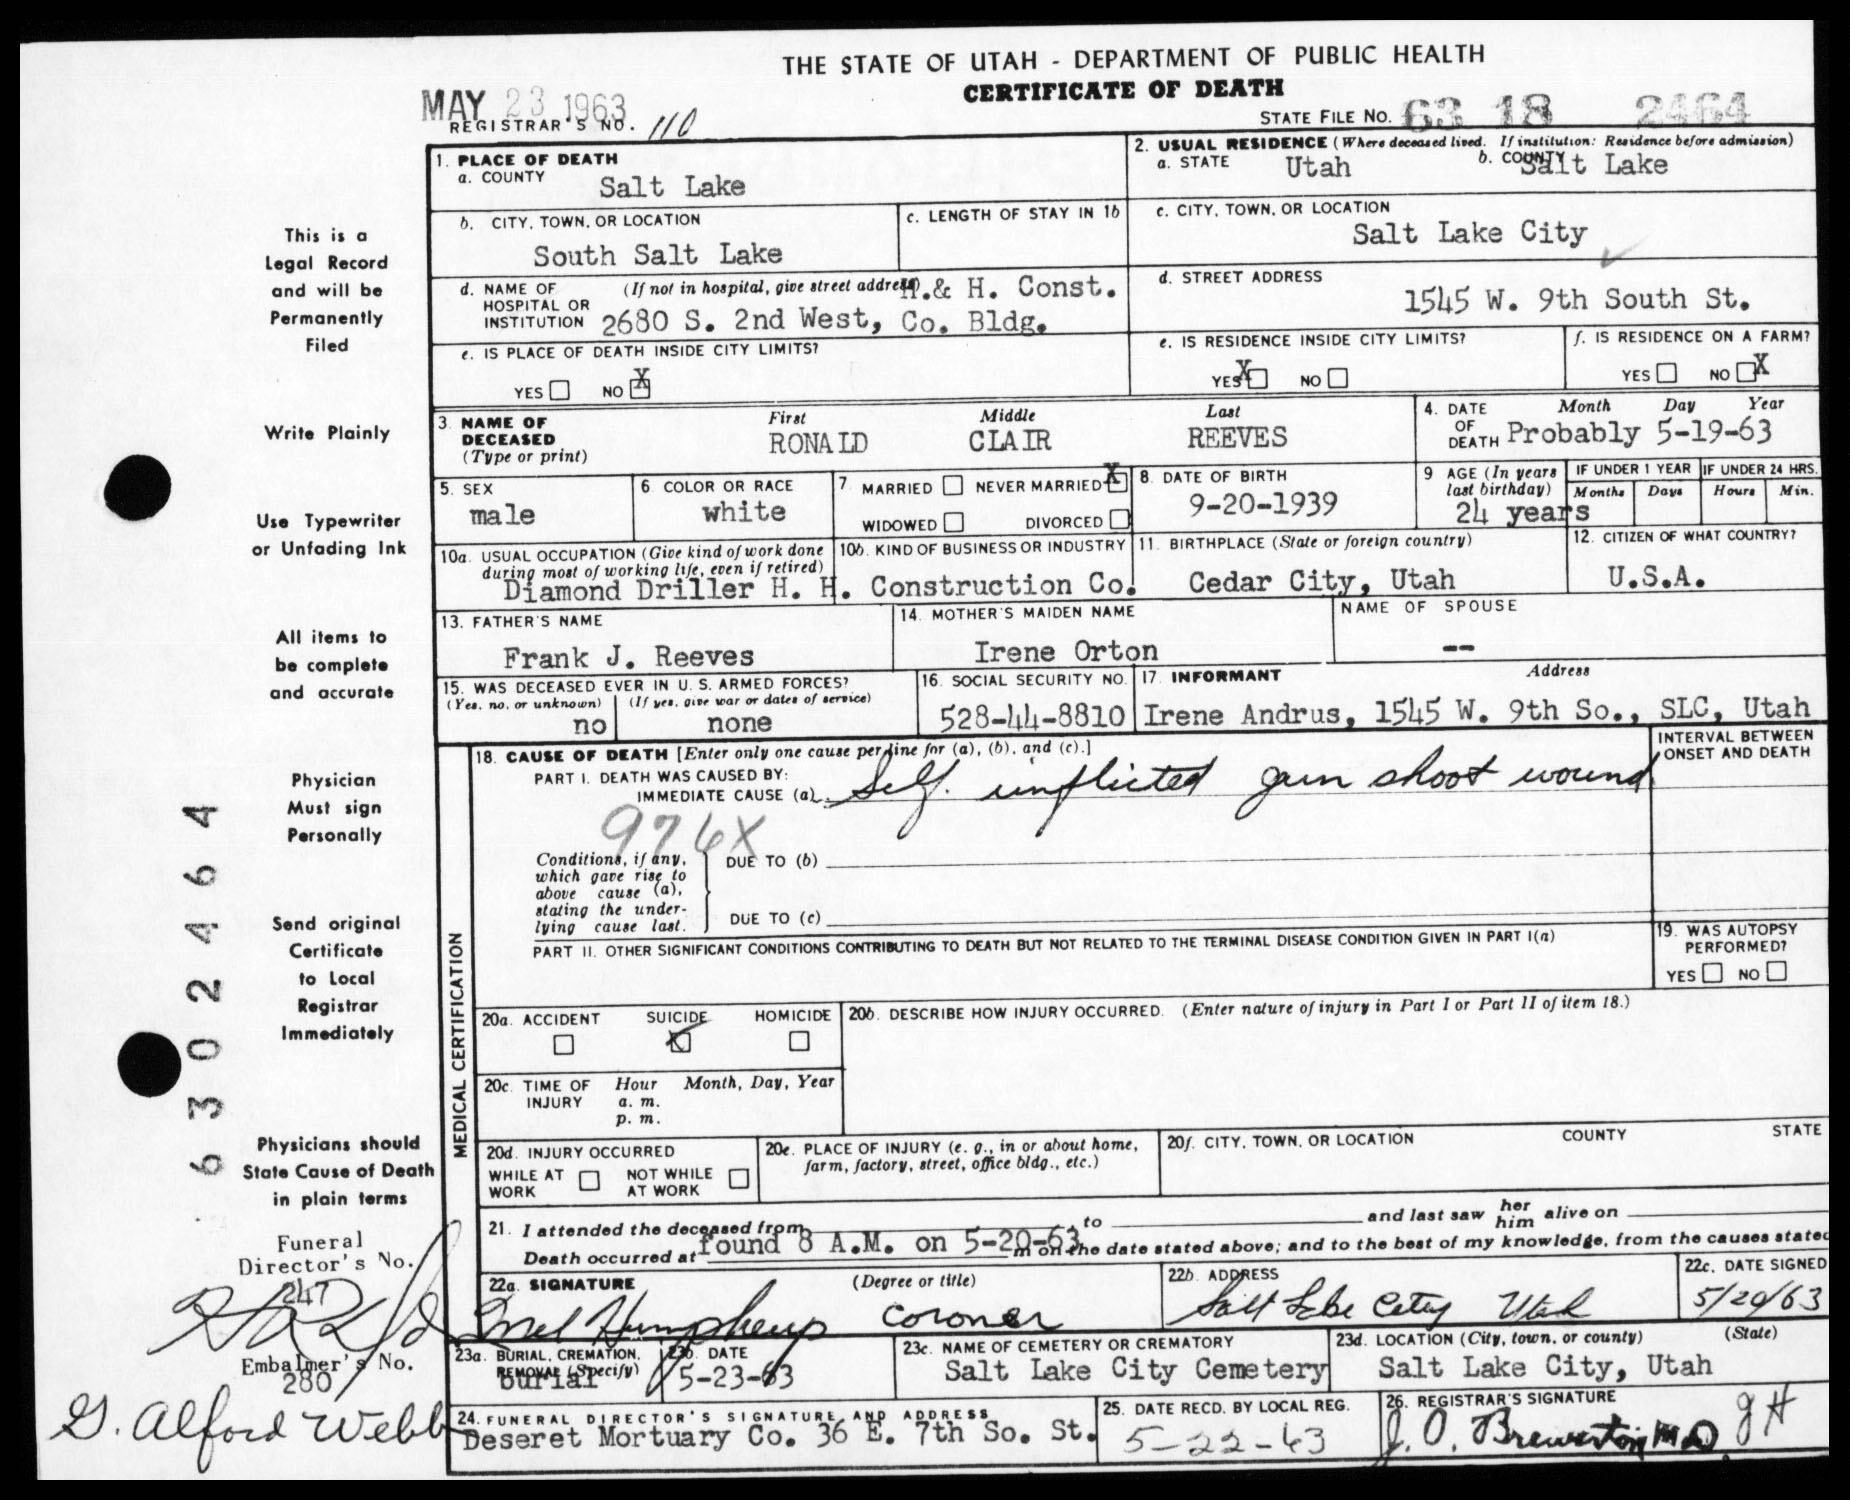 THE STATE OF UTAH - DEPARTMENT OF PUBLIC HEALTH
CERTIFICATE OF DEATH
MAY 23 1963
REGISTRAR'S NO. 110
STATE FILE NO. 63 18 2464
1. PLACE OF DEATH
a. COUNTY Salt Lake
2. USUAL RESIDENCE (Where deceased lived. If institution: Residence before admission)
a. STATE Utah b. COUNTY Salt Lake
b. CITY, TOWN, OR LOCATION
South Salt Lake
c. LENGTH OF STAY IN 1b
c. CITY, TOWN, OR LOCATION
Salt Lake City
d. NAME OF HOSPITAL OR INSTITUTION (If not in hospital, give street address) H.& H. Const.
2680 S. 2nd West, Co. Bldg.
d. STREET ADDRESS
1545 W. 9th South St.
e. IS PLACE OF DEATH INSIDE CITY LIMITS?
YES NO X
e. IS RESIDENCE INSIDE CITY LIMITS?
YES X NO
f. IS RESIDENCE ON A FARM?
YES NO X
3. NAME OF DECEASED (Type or print)
First Middle Last
RONALD CLAIR REEVES
4. DATE OF DEATH Month Day Year
Probably 5-19-63
5. SEX
male
6. COLOR OR RACE
white
7. MARRIED NEVER MARRIED X
WIDOWED DIVORCED
8. DATE OF BIRTH
9-20-1939
9 AGE (In years last birthday)
24 years
IF UNDER 1 YEAR IF UNDER 24 HRS.
Months Days Hours Min.
10a. USUAL OCCUPATION (Give kind of work done during most of working life, even if retired)
10b. KIND OF BUSINESS OR INDUSTRY
Diamond Driller H. H. Construction Co.
11. BIRTHPLACE (State or foreign country)
Cedar City, Utah
12. CITIZEN OF WHAT COUNTRY?
U.S.A.
13. FATHER'S NAME
Frank J. Reeves
14. MOTHER'S MAIDEN NAME
Irene Orton
NAME OF SPOUSE
--
15. WAS DECEASED EVER IN U. S. ARMED FORCES?
(Yes, no, or unknown) (If yes, give war or dates of service)
no none
16. SOCIAL SECURITY NO.
528-44-8810
17. INFORMANT Address
Irene Andrus, 1545 W. 9th So., SLC, Utah
18. CAUSE OF DEATH [Enter only one cause per line for (a), (b), and (c).]
INTERVAL BETWEEN ONSET AND DEATH
PART I. DEATH WAS CAUSED BY:
IMMEDIATE CAUSE (a) Self. unflicted gun shoot wound
976X
Conditions, if any, which gave rise to above cause (a), stating the underlying cause last.
DUE TO (b)
DUE TO (c)
PART II. OTHER SIGNIFICANT CONDITIONS CONTRIBUTING TO DEATH BUT NOT RELATED TO THE TERMINAL DISEASE CONDITION GIVEN IN PART I(a)
19. WAS AUTOPSY PERFORMED?
YES NO
MEDICAL CERTIFICATION
20a. ACCIDENT SUICIDE X HOMICIDE
20b. DESCRIBE HOW INJURY OCCURRED. (Enter nature of injury in Part I or Part II of item 18.)
20c. TIME OF INJURY Hour Month, Day, Year
a. m.
p. m.
20d. INJURY OCCURRED
WHILE AT WORK NOT WHILE AT WORK
20e. PLACE OF INJURY (e. g., in or about home, farm, factory, street, office bldg., etc.)
20f. CITY, TOWN, OR LOCATION COUNTY STATE
21. I attended the deceased from to and last saw her him alive on
Death occurred at found 8 A.M. on 5-20-63 m on the date stated above; and to the best of my knowledge, from the causes stated
22a. SIGNATURE (Degree or title)
Mel Humpherys Coroner
22b. ADDRESS
Salt Lake City Utah
22c. DATE SIGNED
5/20/63
23a. BURIAL, CREMATION, REMOVAL (Specify)
burial
23b. DATE
5-23-63
23c. NAME OF CEMETERY OR CREMATORY
Salt Lake City Cemetery
23d. LOCATION (City, town, or county) (State)
Salt Lake City, Utah
24. FUNERAL DIRECTOR'S SIGNATURE AND ADDRESS
Deseret Mortuary Co. 36 E. 7th So. St.
25. DATE RECD. BY LOCAL REG.
5-22-63
26. REGISTRAR'S SIGNATURE
J. O. Brewerton M D. JH
This is a
Legal Record
and will be
Permanently
Filed
Write Plainly
Use Typewriter
or Unfading Ink
All items to
be complete
and accurate
Physician
Must sign
Personally
Send original
Certificate
to Local
Registrar
Immediately
Physicians should
State Cause of Death
in plain terms
Funeral
Director's No.
247
Embalmer's No.
280
G. Alford Webb
6302464